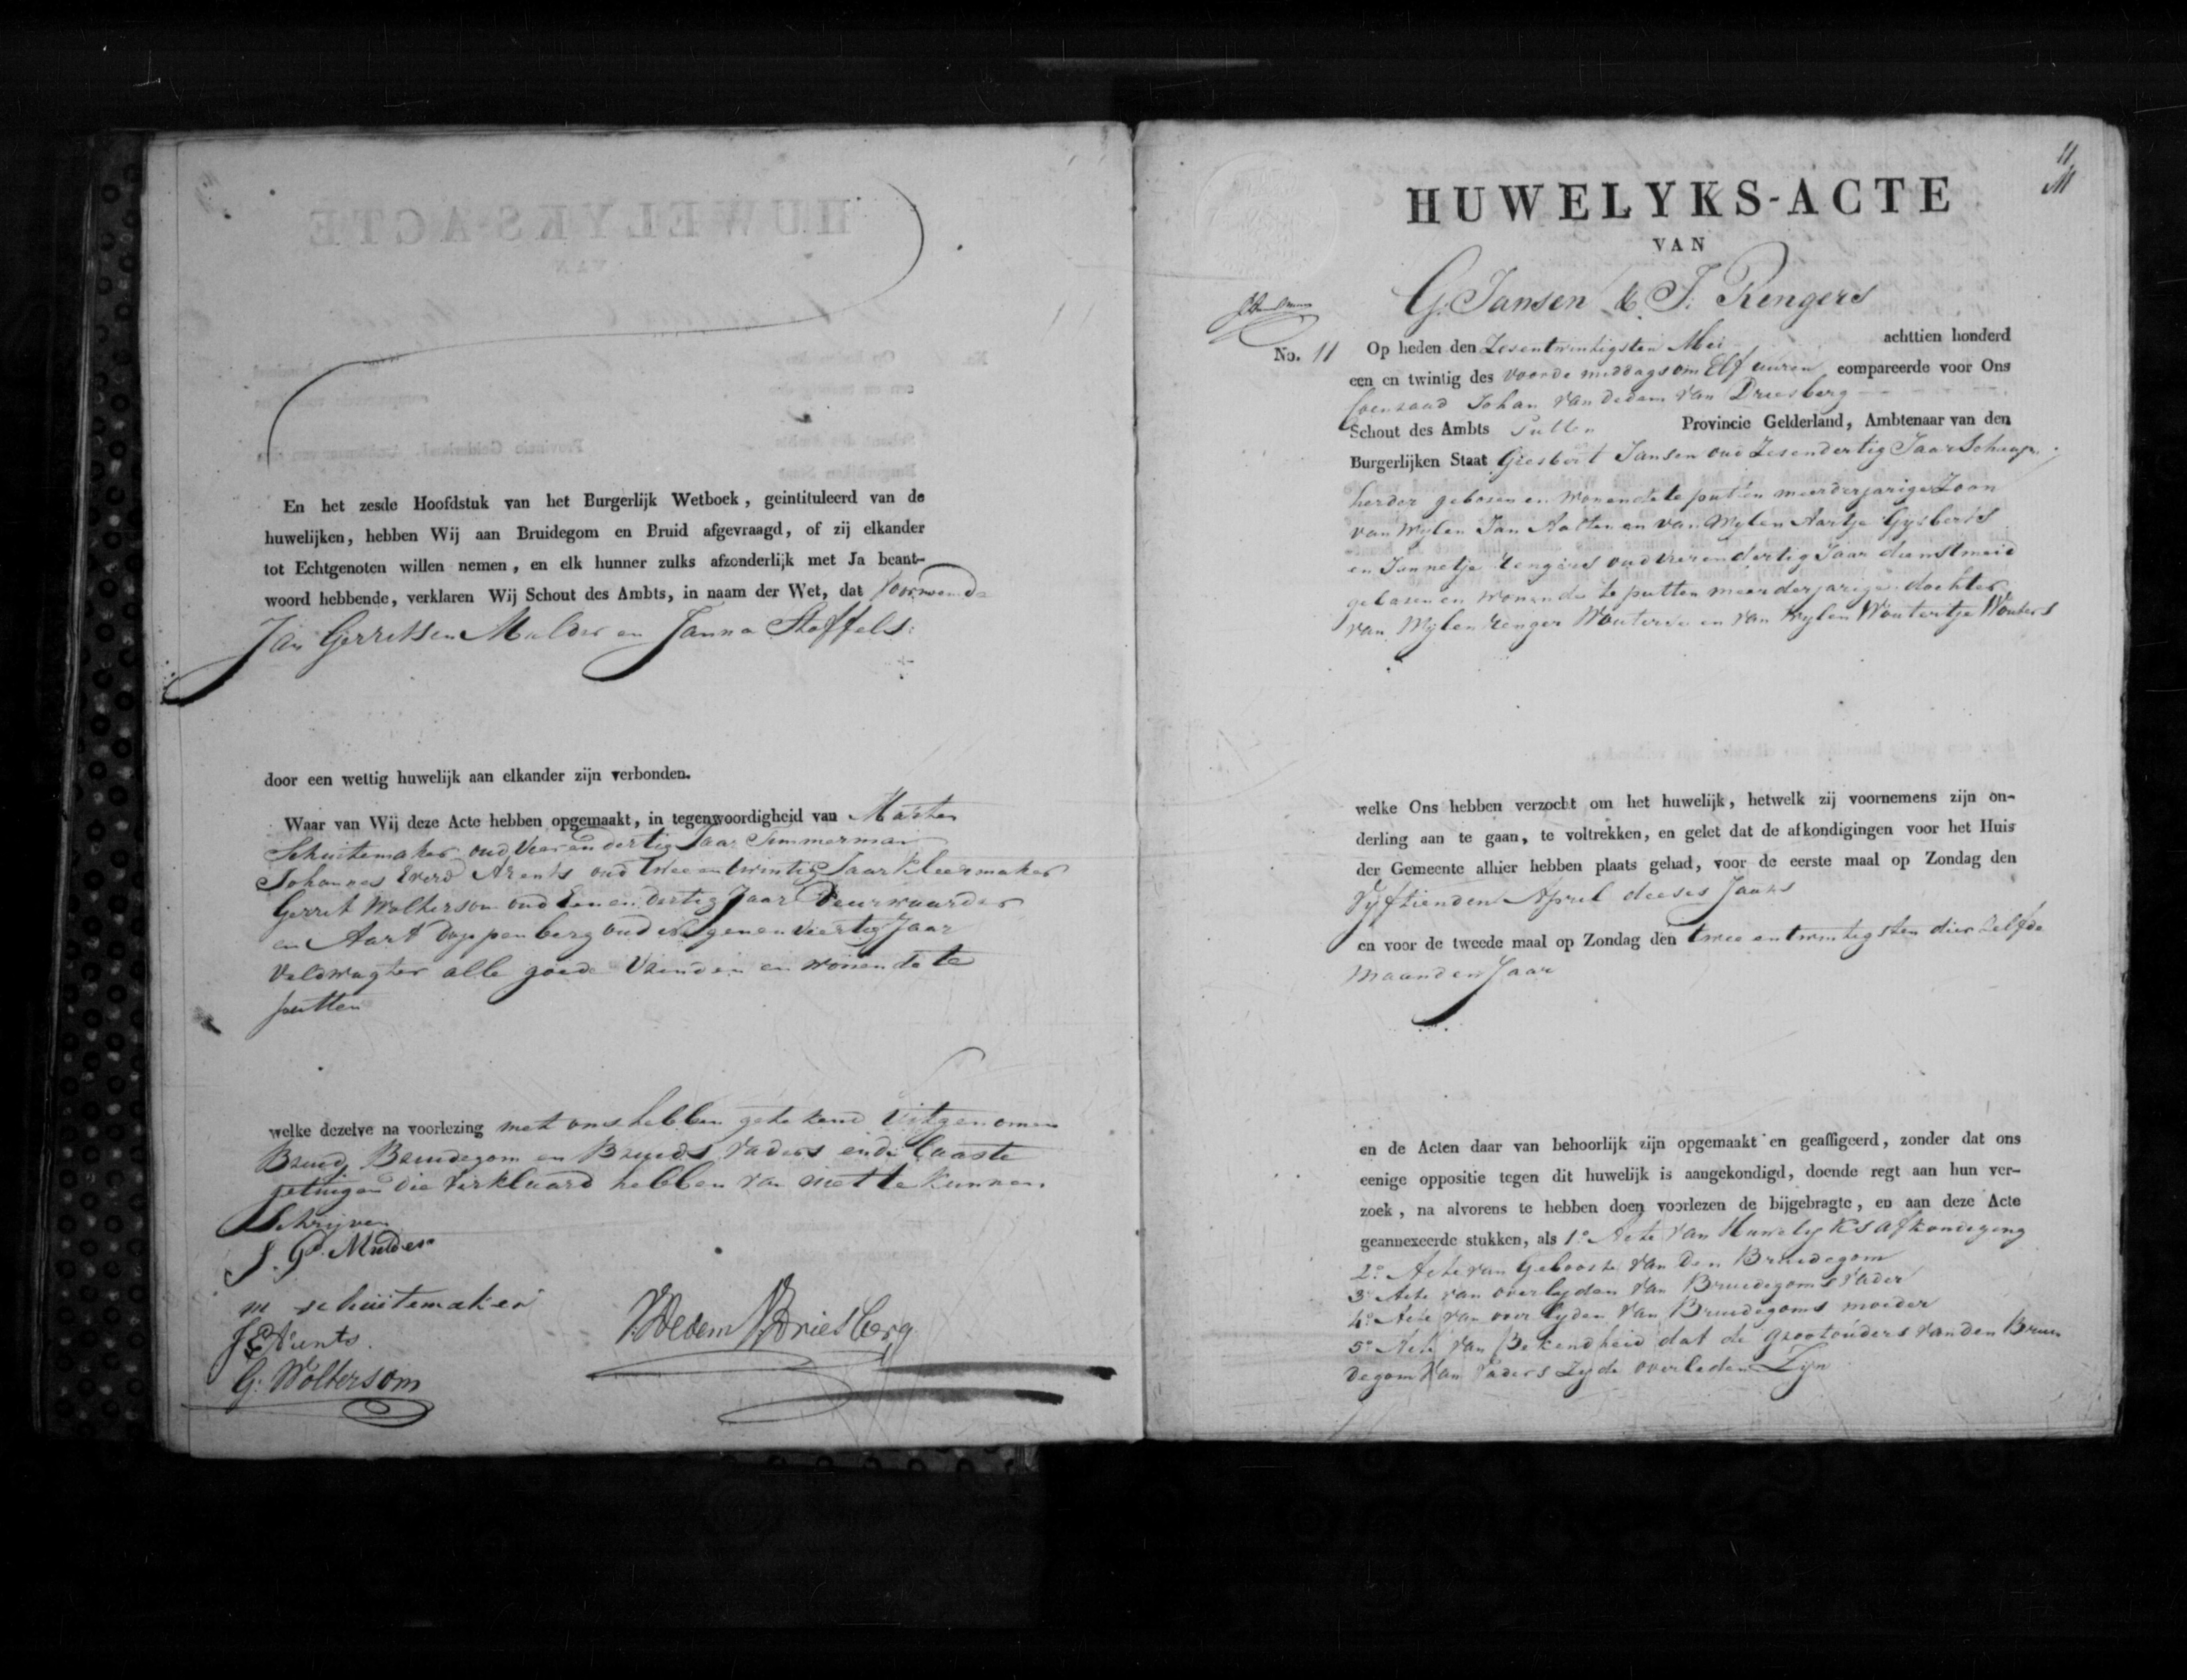 En het zesde Hoofdstuk van het Burgerlijk Wetboek, geintituleerd van de
huwelijken, hebben Wij aan Bruidegom en Bruid afgevraagd, of zij elkander
tot Echtgenoten willen nemen, en elk hunner zulks afzonderlijk met Ja beant-
woord hebbende, verklaren Wij Schout des Ambts, in naam der Wet, dat voornoemde
Jan Gerritsen Mulder en Janna Stoffels
door een wettig huwelijk aan elkander zijn verbonden.
Waar van Wij deze Acte hebben opgemaakt, in tegenwoordigheid van Marten
Schuitemaker oud Vier en dertig Jaar Timmerman
Johannes Everd Arents oud twee en twintig Jaar Kleermaker
Gerret Woltersom oud Een en dertig Jaar Deurwaarder
en Aart Doppenberg oud Negenenveertig Jaar
Veldwagter alle goede Vrinden en wonende te
putten
welke dezelve na voorlezing met ons hebben getekend Uitgenomen
Bruid, Bruidegom en Bruids Vaders en de laaste
getuigen die verklaard hebben van niet te kunnen
Schrijven
J. Gd. Mulder
m schuitemaker
J E Arents.
G: Woltersom
V: Dedem V: Driesberg
11
HUWELYKS-ACTE
VAN
G. Jansen & J: Rengers
No. 11 Op heden den Zesentwintigsten Mei achttien honderd
een en twintig des voorde middags om Elf uuren compareerde voor Ons
Coenraad Johan Van Dedem Van Driesberg
Schout des Ambts Putten Provincie Gelderland, Ambtenaar van den
Burgerlijken Staat Giesbert Jansen oud Zesendertig Jaar Schaap
herder gebosen en Wonende te putten meerderjarige Zoon
van Wylen Jan Aalten en van Wylen Aartje Gysberts
en Jannetje Rengers oud vierendertig Jaar dienstmeid
gebosen en wonende te putten meerderjarige dochter
van Wylen Renger Wouterse en Van Wylen Woutertje Wouters
welke Ons hebben verzocht om het huwelijk, hetwelk zij voornemens zijn on-
derling aan te gaan, te voltrekken, en gelet dat de afkondigingen voor het Huis
der Gemeente alhier hebben plaats gehad, voor de eerste maal op Zondag den
Vyftienden April deeses Jaars
en voor de tweede maal op Zondag den twee en twintigsten dier zelfde
maand en Jaar
en de Acten daar van behoorlijk zijn opgemaakt en geaffigeerd, zonder dat ons
eenige oppositie tegen dit huwelijk is aangekondigd, doende regt aan hun ver-
zoek, na alvorens te hebben doen voorlezen de bijgebragte, en aan deze Acte
geannexeerde stukken, als 1o Acte van Huwelyks afkondiging
2o Acte van Geboorte van den Bruidegom
3o Acte van overlyden van Bruidegoms Vader
4o Acte van over lyden van Bruidegoms moeder
5o Acte van Bekendheid dat de grootouders van den Brui
degom Van Vaders Zyde overleden Zyn